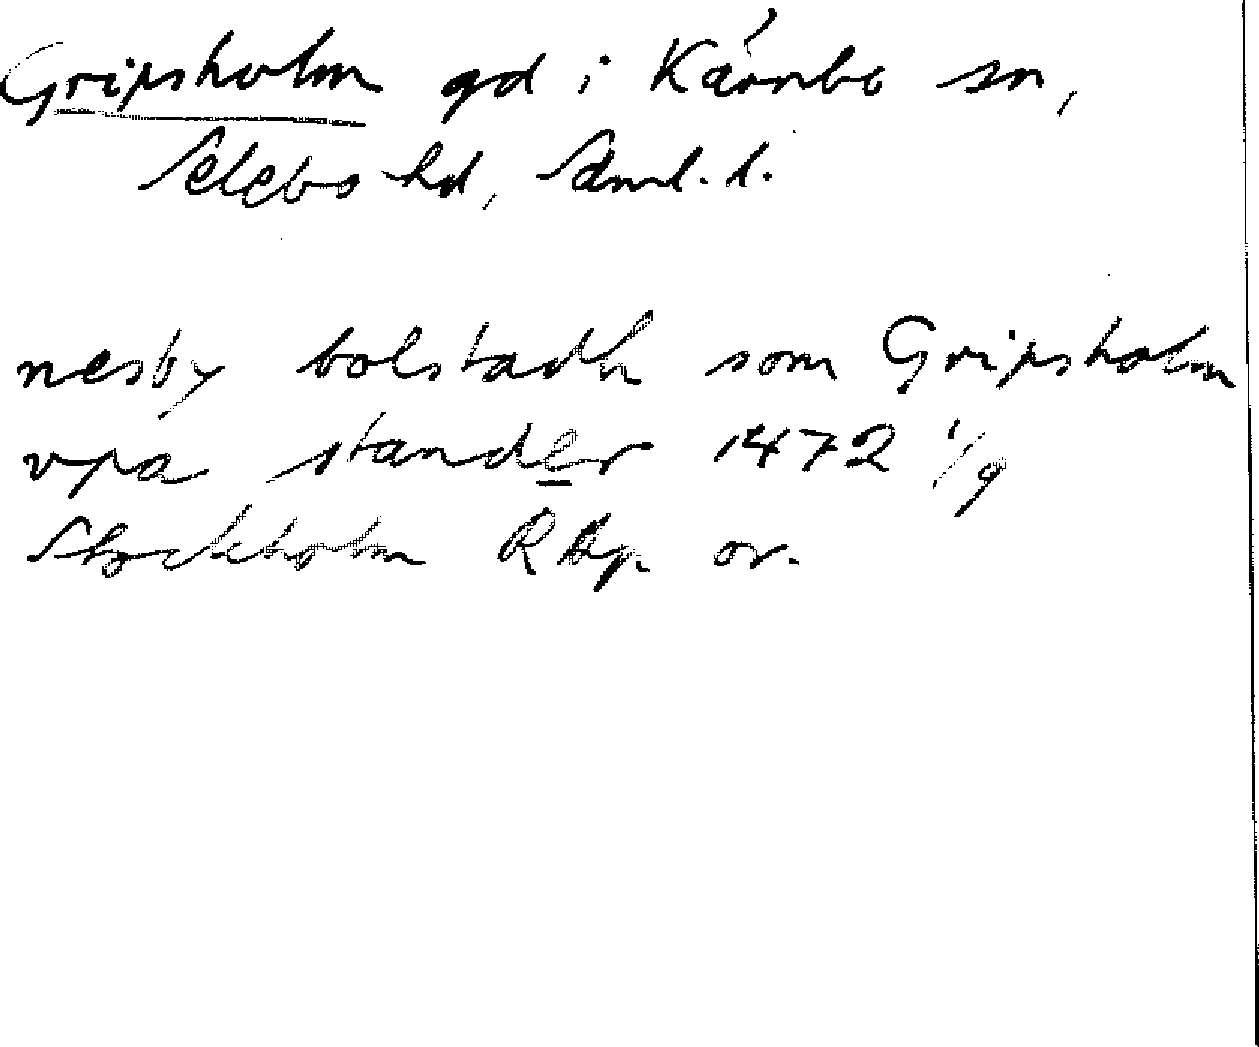 Gripsholm gd i Kärnbo sn,
Selebo hd, Sdml. l.
nesby bolstadh som Gripsholm
vpa stander 1472 1/9
Stockholm RAp or.